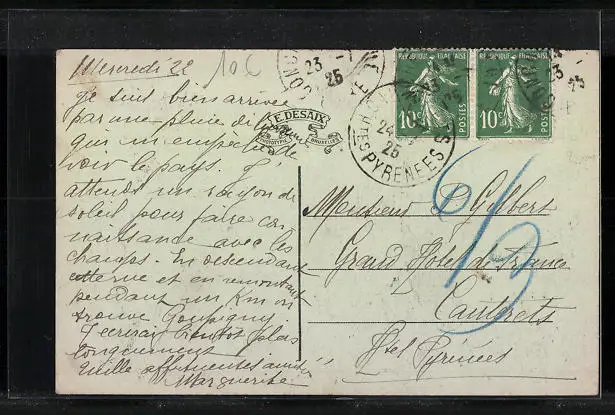 Mercredi 22
10c
Je suis bien arrivée
par une pluie
qui m'empêche de
voir le pays. J'
attends un rayon de
soleil pour faire con
naissance avec les
champs. En descendant
et en remontant
pendant un Km on
trouve
J'écrirai bientôt plus
longuement
Mille affectueuses amitiés
Marguerite
E. DESAIX
BRUXELLES
23
25
REPUBLIQUE FRANÇAISE
10c
POSTES
REPUBLIQUE FRANÇAISE
10c
POSTES
24
25
PYRENEES
Monsieur D Gylbert
Grand Hôtel de France
Cauterets
Htes Pyrénées